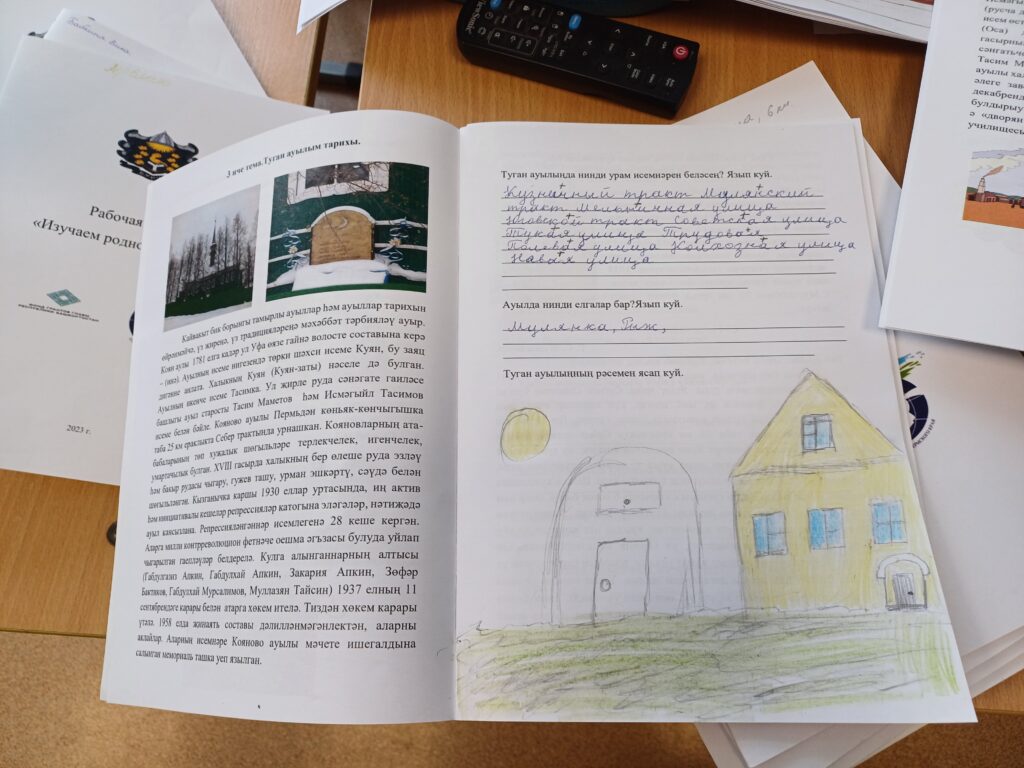 Рабочая
«Изучаем родно
2023 г.
3 нче тема.Туган ауылым тарихы.
Кайвакыт бик борынгы тамырлы ауыллар һәм ауыллар тарихын
өйрәнмәйчә, үз җиренә, үз традицияләренә мәхәббәт тәрбияләү авыр.
Коян аулы 1781 елга кадәр ул Уфа өязе гайнә волосте составына керә
– (икә). Ауылның исеме нигезендә төрки шәхси исеме Куян, бу заяц
дигәнне аңлата. Халыкның Куян (Куян-заты) нәселе дә булган.
Ауылның икенче исеме Тасимка. Ул жирле руда сәнәгате гаиләсе
башдыгы ауыл старосты Тасим Маметов һәм Исмәгыйл Тасимов
исеме белән бәйле. Кояново ауылы Пермьдән көньяк-көнчыгышка
таба 25 км ераклыкта Себер трактында урнашкан. Кояновларның ата-
бабаларының төп хужалык шөгыльләре терлекчелек, игенчелек,
умартачылык булган. XVIII гасырда халыкның бер өлеше руда эзләү
һәм бакыр рудасы чыгару, гужев ташу, урман эшкәртү, сәүдә белән
шөгыльләнгән. Кызганычка каршы 1930 еллар уртасында, иң актив
һәм инициативалы кешеләр репрессияләр катогына эләгәләр, нәтиҗәдә
ауыл кансызлана. Репрессияләнгәннәр исемлегенә 28 кеше кергән.
Аларга милли контрреволюцион фетнәче оешма әгъзасы булуда уйлап
чыгарылган гаепләүләр белдерелә. Кулга алынганнарның алтысы
(Габдулгазиз Апкин, Габдулхай Апкин, Закария Апкин, Зөфәр
Бактаков, Габдулхай Мурсалимов, Муллазян Тайсин) 1937 елның 11
сентябрендәге карары белән атарга хөкем ителә. Тиздән хөкем карары
үтәлә. 1958 елда җинаять составы дәлилләнмәгәнлектән, аларны
аклайлар. Аларның исемнәре Кояново ауылы мәчете ишегалдына
салынган мемориаль ташка уеп язылган.
Туган ауылында нинди урам исемнәрен беләсең? Язып куй.
Кузничный тракт Мулянский
тракт Мельничная улица
Юговской тракт Советская улица
Тукая улица Трудовая
Полевая улица Колхозная улица
Навая улица
Ауылда нинди елгалар бар?Язып куй.
Мулянка, Рыж,
Туган ауылыңның рәсемен ясап куй.
(Оса)
гасырны
Тасим М
ауылы хал
әлеге зав
декабренд
булдыру
ә «дворян
училищесы